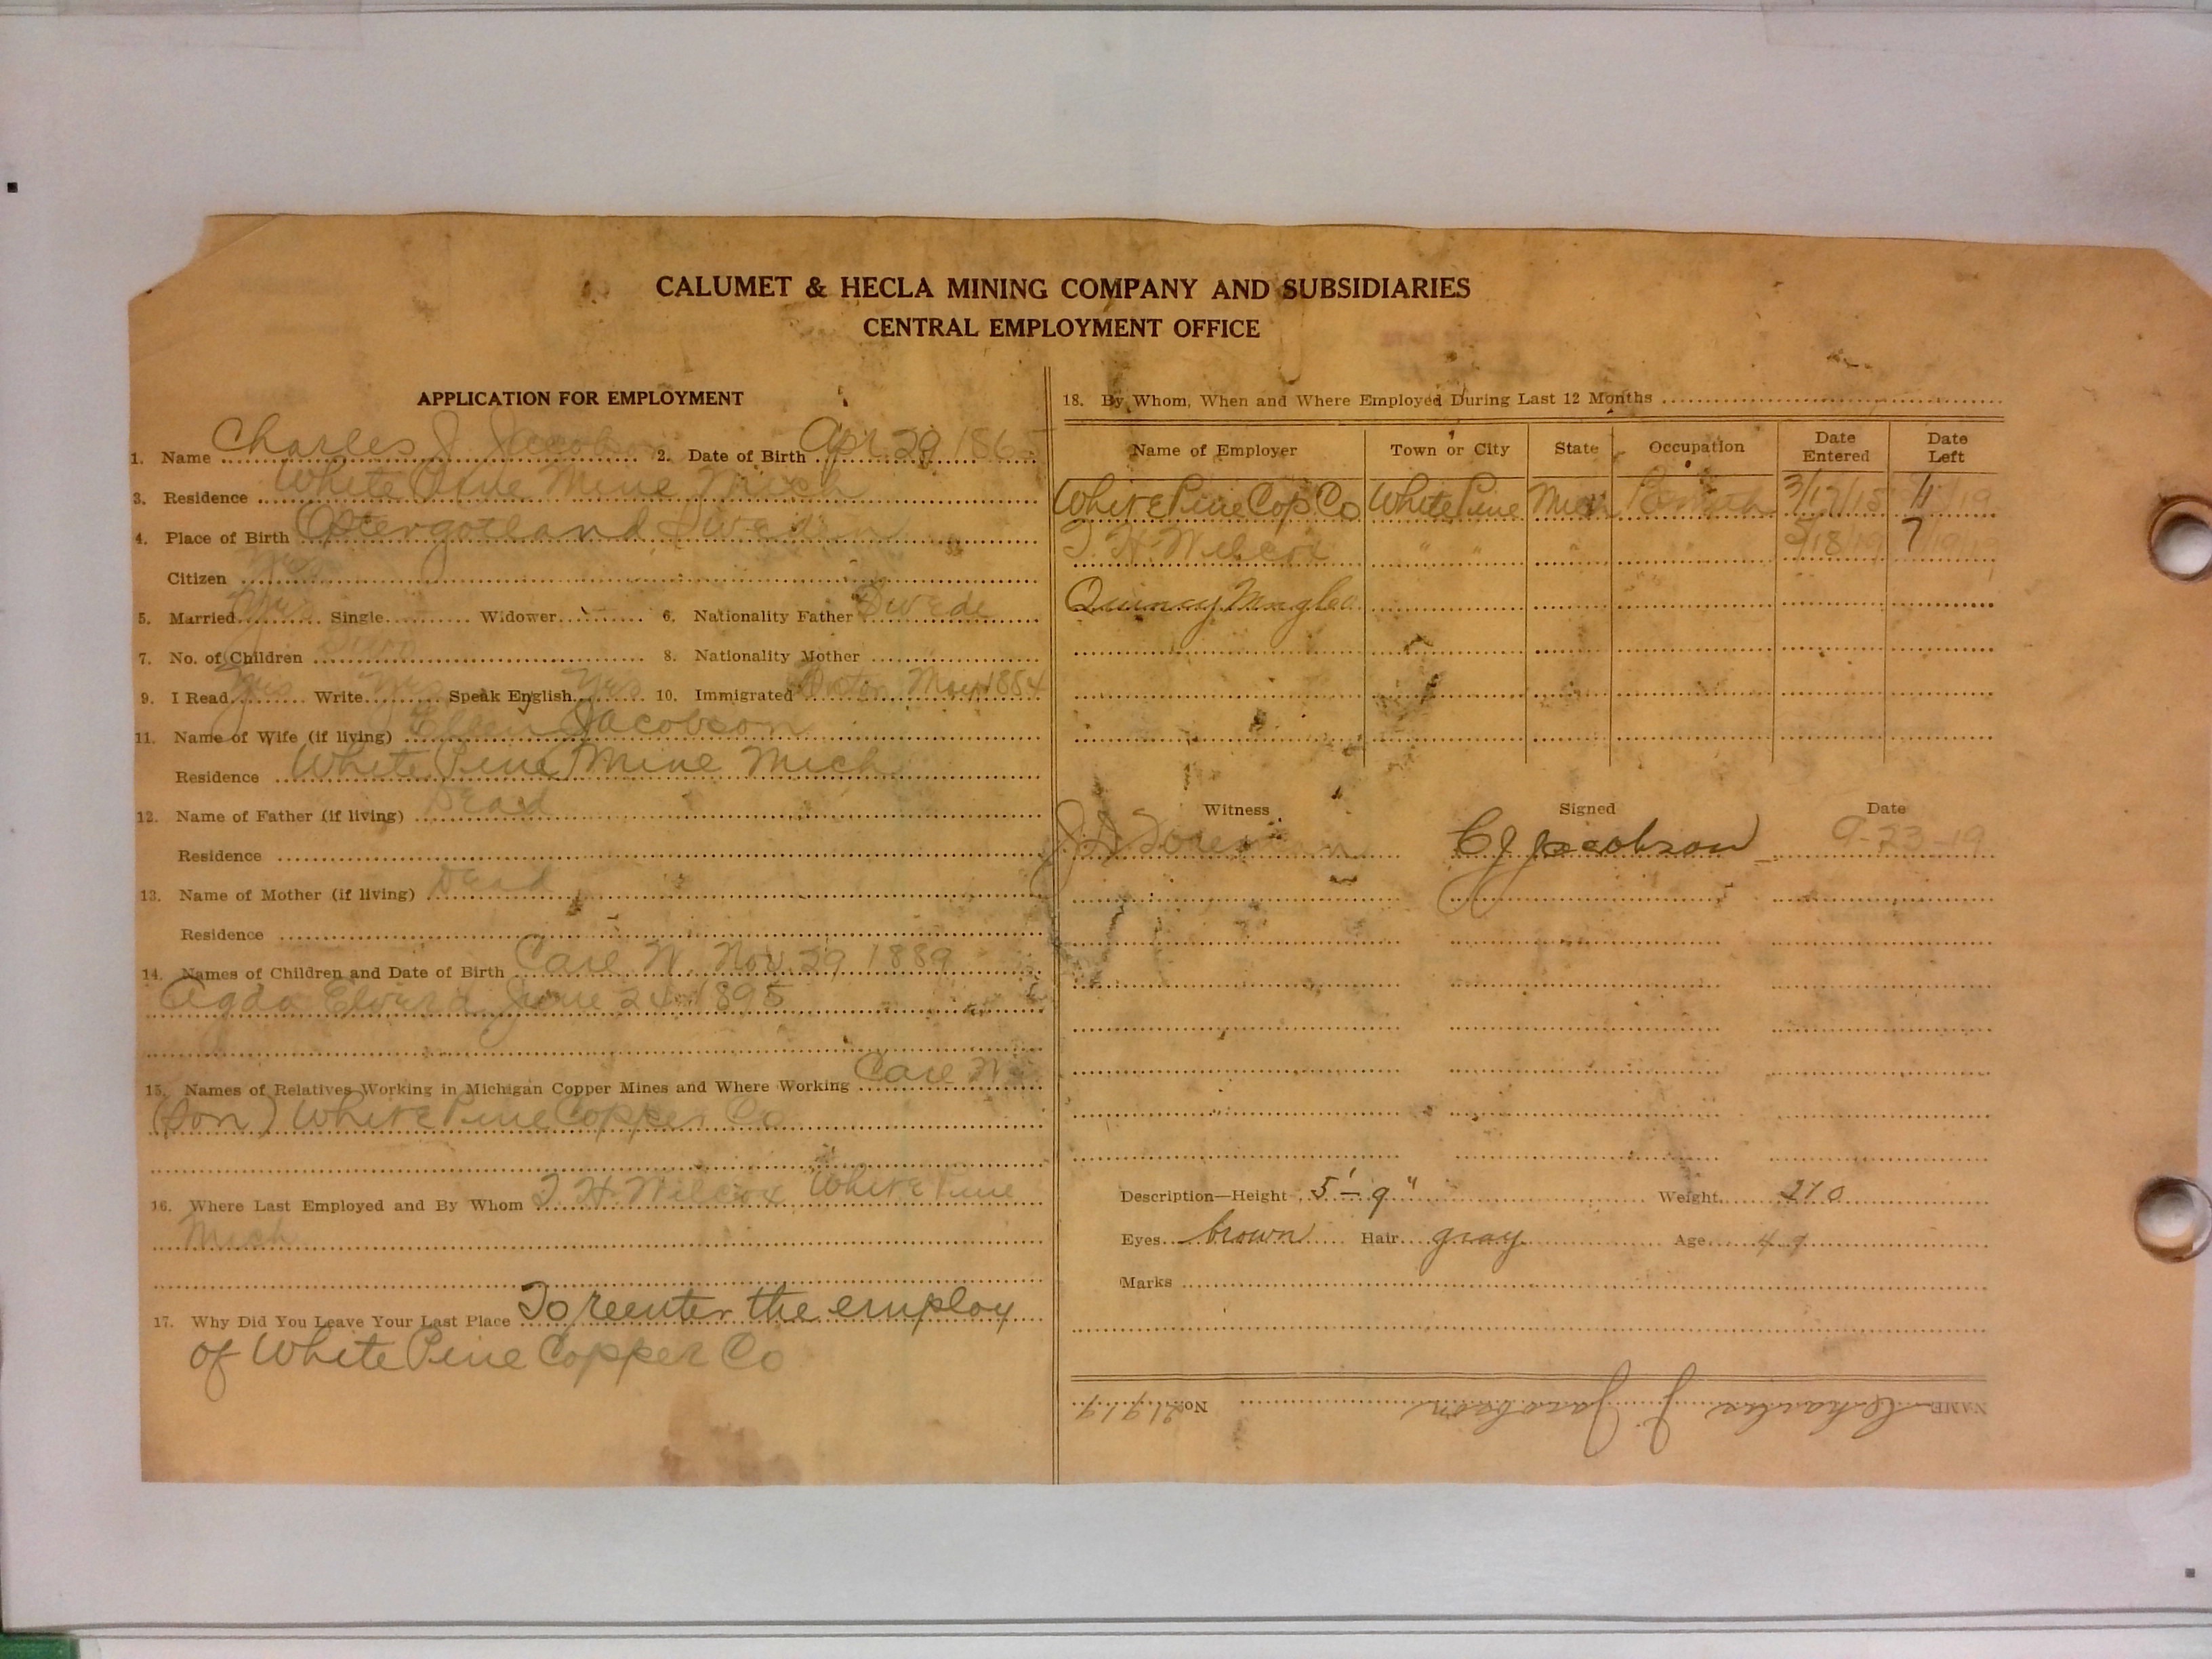 CALUMET & HECLA MINING COMPANY AND SUBSIDIARIES
CENTRAL EMPLOYMENT OFFICE
APPLICATION FOR EMPLOYMENT
1. Name Charles J. Jacobson 2. Date of Birth Apr 29 1865
3. Residence White Pine Mine Mich
4. Place of Birth Ostergotland Sweden
Citizen Yes
5. Married Yes Single Widower 6. Nationality Father Swede
7. No. of Children Two 8. Nationality Mother
9. I Read Yes Write Yes Speak English Yes 10. Immigrated May 1884
11. Name of Wife (if living) Ellen Jacobson
Residence White Pine Mine Mich
12. Name of Father (if living) Dead
Residence
13. Name of Mother (if living) Dead
Residence
14. Names of Children and Date of Birth Carl W. Nov. 29 1889
Agda Elvira June 24 1895
15. Names of Relatives Working in Michigan Copper Mines and Where Working Carl W.
(Son) White Pine Copper Co
16. Where Last Employed and By Whom T. H. Wilcox White Pine
Mich
17. Why Did You Leave Your Last Place To reenter the employ
of White Pine Copper Co
18. By Whom, When and Where Employed During Last 12 Months
Name of Employer Town or City State Occupation Date Entered Date Left
White Pine Cop Co White Pine Mich 3/17/15
T. H. Wilcox " " " 5/18/19
Quincy Mng Co
Witness Signed Date
C J Jacobson 9-23-19
Description—Height 5'-9" Weight 210
Eyes brown Hair gray Age
Marks
NAME Charles J. Jacobson No. 21919